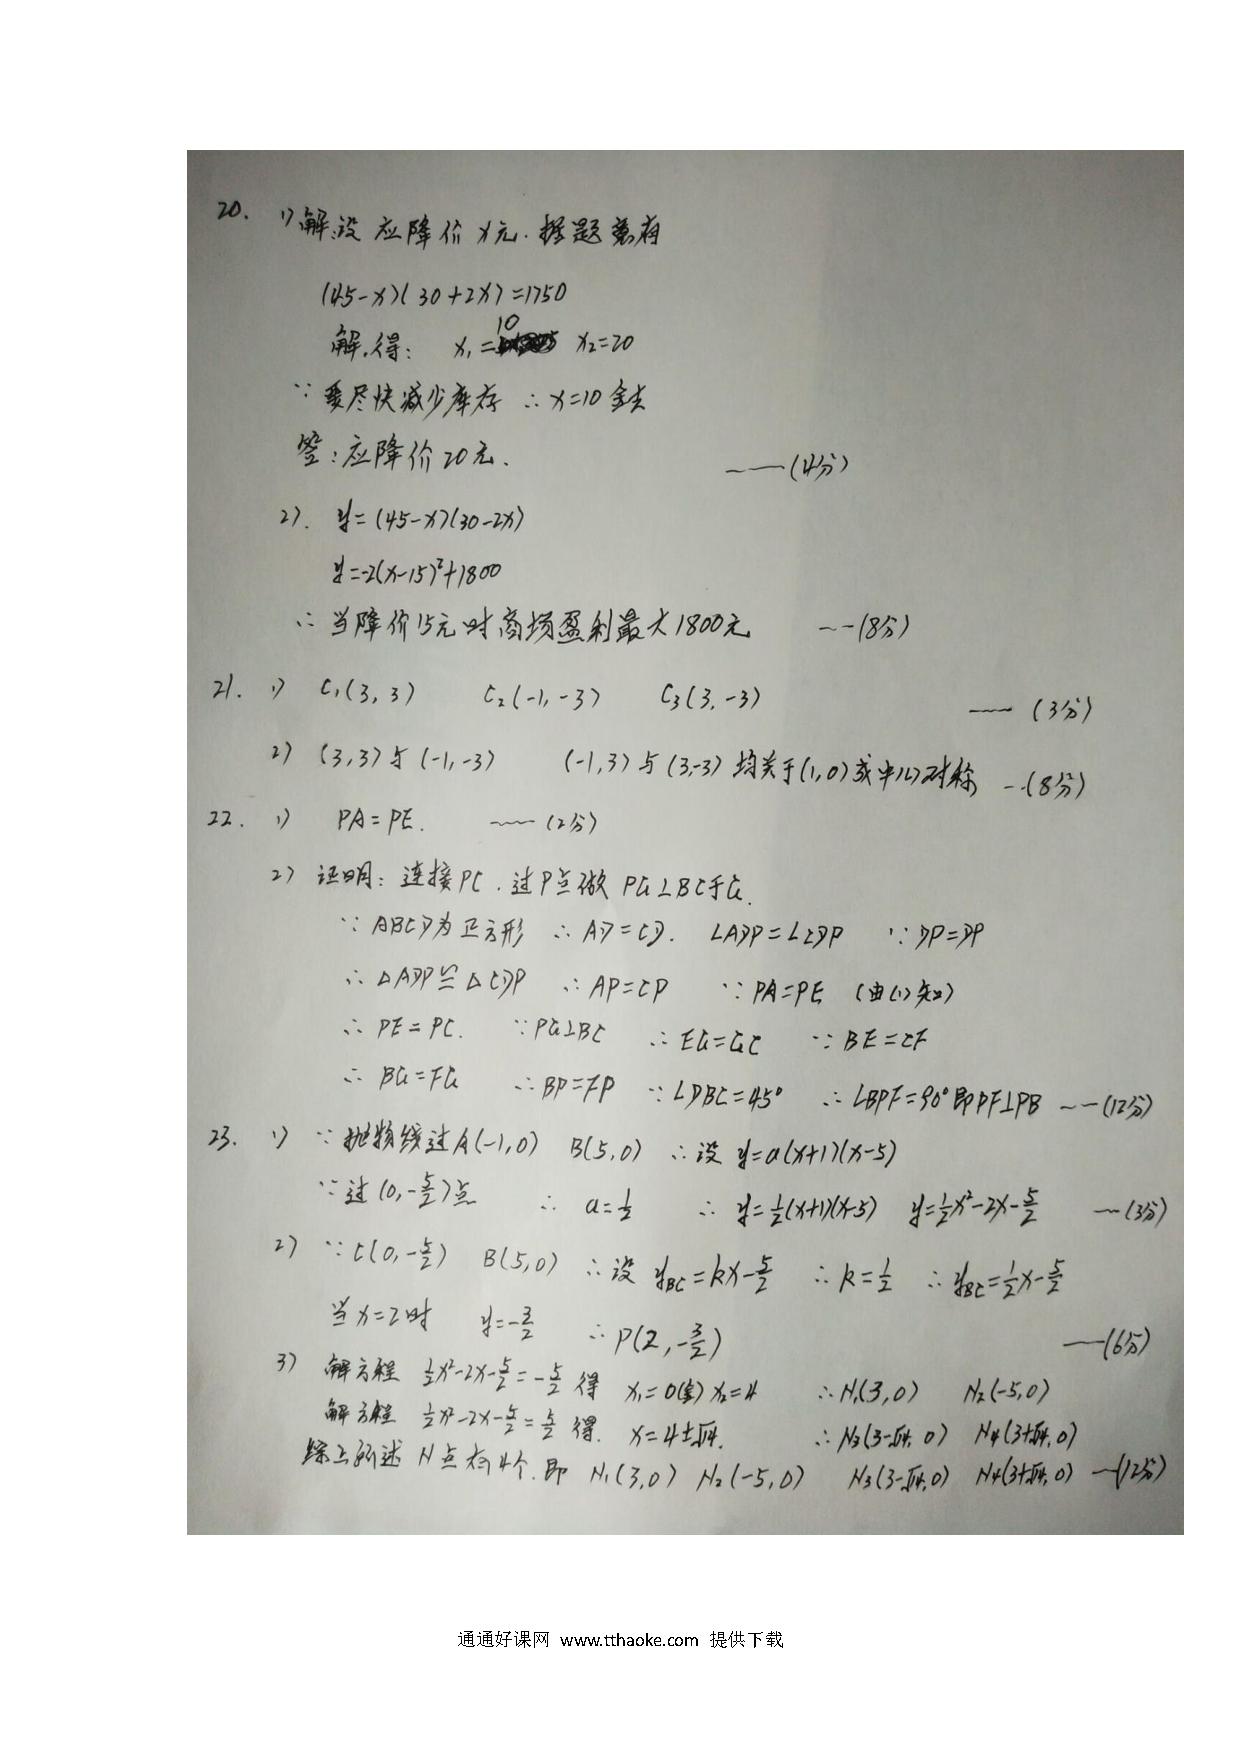 20. 1) 解:设应降价x元.据题意有
(45-x)(30+2x)=1750
解.得: x₁=10 x₂=20
∵要尽快减少库存 ∴x=10舍去
答:应降价20元. ——(4分)
2). y=(45-x)(30-2x)
y=-2(x-15)²+1800
∴当降价15元时商场盈利最大1800元 ——(8分)
21. 1) C₁(3,3) C₂(-1,-3) C₃(3,-3) ——(3分)
2) (3,3)与(-1,-3) (-1,3)与(3,-3)均关于(1,0)成中心对称 ——(8分)
22. 1) PA=PE. ——(2分)
2) 证明:连接PC.过P点做PG⊥BC于G.
∵ABCD为正方形 ∴AD=CD. ∠ADP=∠CDP ∵DP=DP
∴△ADP≌△CDP ∴AP=CP ∵PA=PE (由(1)知)
∴PE=PC. ∵PG⊥BC ∴EG=GC ∵BE=CF
∴BG=FG ∴BP=FP ∵∠DBC=45° ∴∠BPF=90°即PF⊥PB ——(12分)
23. 1) ∵抛物线过A(-1,0) B(5,0) ∴设y=a(x+1)(x-5)
∵过(0,-5/2)点 ∴a=1/2 ∴y=1/2(x+1)(x-5) y=1/2x²-2x-5/2 ——(3分)
2) ∵C(0,-5/2) B(5,0) ∴设y_BC=kx-5/2 ∴k=1/2 ∴y_BC=1/2x-5/2
当x=2时 y=-3/2 ∴P(2,-3/2) ——(6分)
3) 解方程 1/2x²-2x-5/2=-5/2 得 x₁=0(舍) x₂=4 ∴N₁(3,0) N₂(-5,0)
解方程 1/2x²-2x-5/2=5/2 得. x=4±√14. ∴N₃(3-√14,0) N₄(3+√14,0)
综上所述 N点有4个.即 N₁(3,0) N₂(-5,0) N₃(3-√14,0) N₄(3+√14,0) ——(12分)
通通好课网 www.tthaoke.com 提供下载